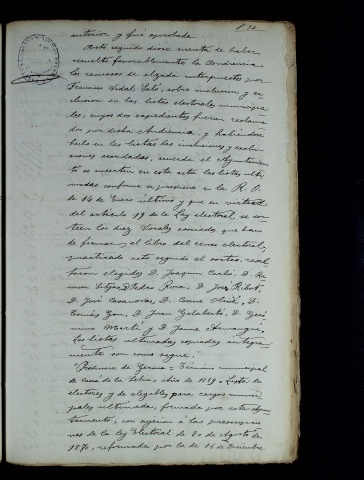 anterior y fué aprobada.
Acto seguido diose cuenta de haber
resuelto favorablemente la Audiencia
los recursos de alzada interpuestos por
Francisco Vidal, sobre inclusion y ex-
clusion en las listas electorales municipa-
les, cuyos dos expedientes fueron reclama-
dos por dicha Audiencia, y habiéndose
hecho en las listas las inclusiones y exclu-
siones acordadas, acuerda el Ayuntamien-
to se inserten en esta acta las listas ulti-
madas conforme se previene en la R. O.
de 16 de Enero último y que en virtud
del artículo 19 de la Ley electoral se sor-
teen los diez Vocales asociados que han
de firmar el libro del censo electoral,
practicado acto seguido el sorteo, resul-
taron elegidos D. Joaquin Carbó, D. Ra-
mon, D. Pedro Roca, D. José Ribot,
D. José Casanovas, D. Cosme Olivé, D.
Tomás, D. Juan Galabertó, D. Geró-
nimo Martí y D. Jaime
Las listas ultimadas copiadas integra-
mente son como sigue:
"Provincia de Gerona = Término municipal
de Cassá de la Selva = Año de 1889 = Lista de
electores y de elegibles para cargos munici-
pales ultimada, formada por este Ayun-
tamiento, con sujecion á las prescripcio-
nes de la Ley Electoral de 20 de Agosto de
1870, reformada por la de 16 de Diciembre